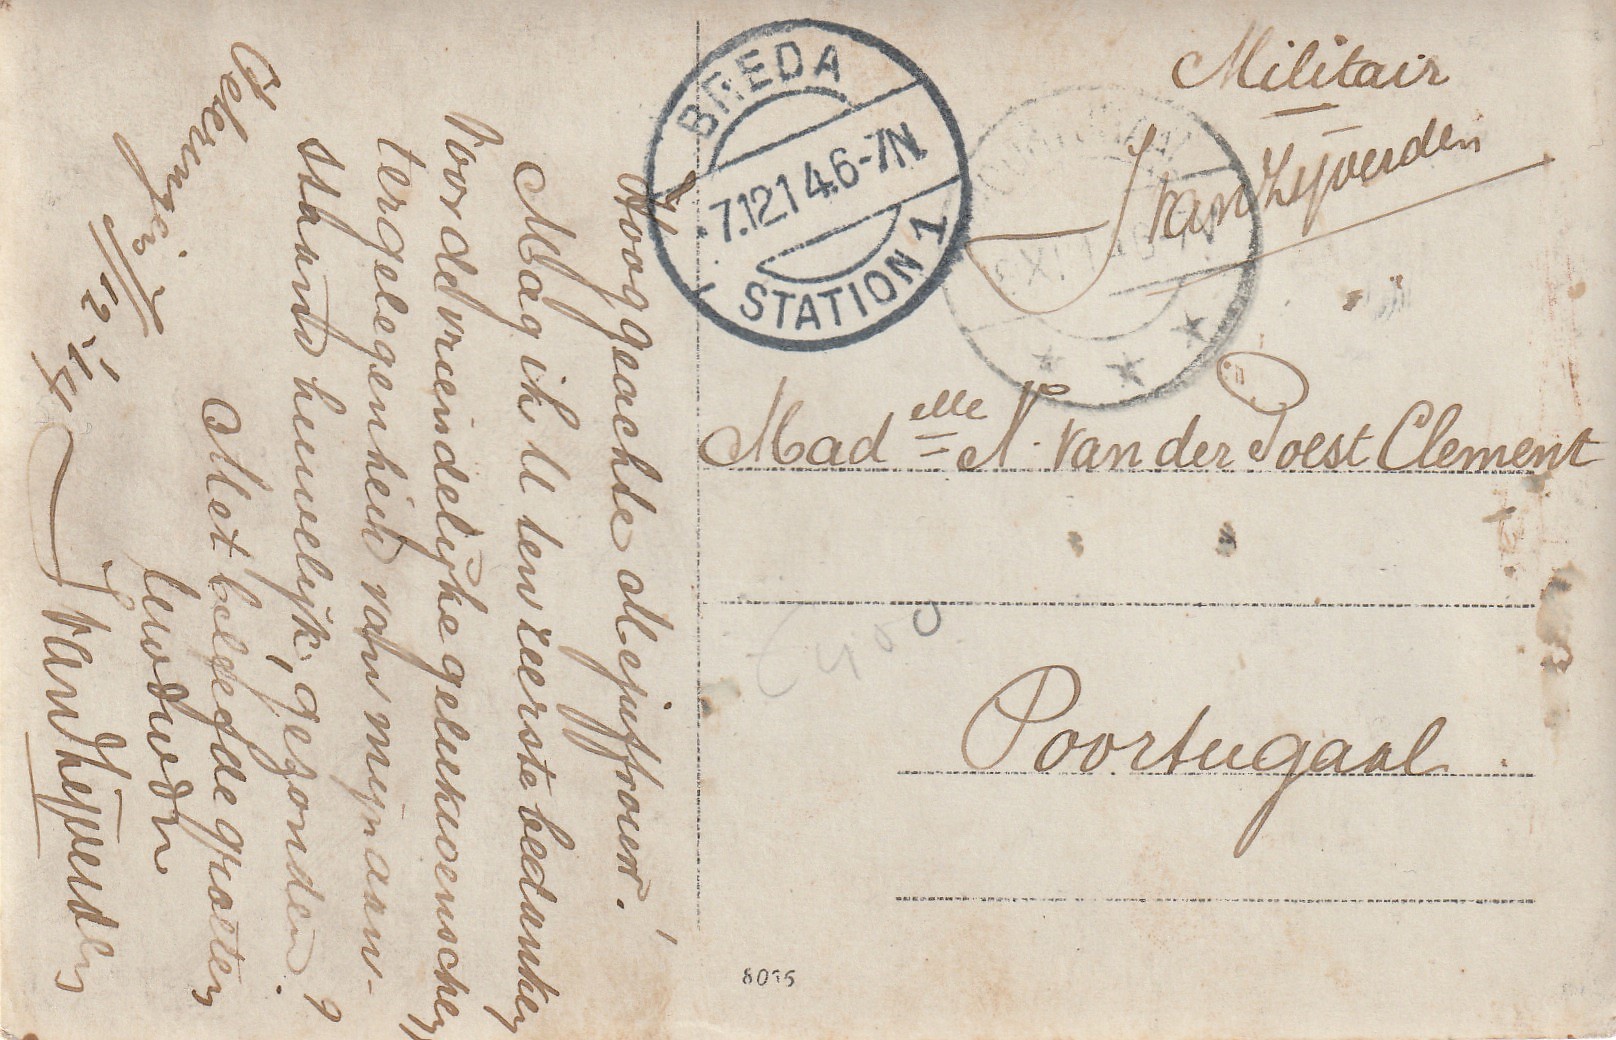 Hooggeachte Mejuffrouw!
Mag ik U ten zeerste bedanken
voor de vriendelijke gelukwenschen
ter gelegenheid van mijn aan-
staand huwelijk, gezonden.
Met beleefde groeten
Uw dw dr
J van Zijverden
7/12 '14
BREDA
7.12.14.6-7N.
STATION 1
Militair
J van Zijverden
Mad elle N. van der Poest Clement
Poortugaal
8015